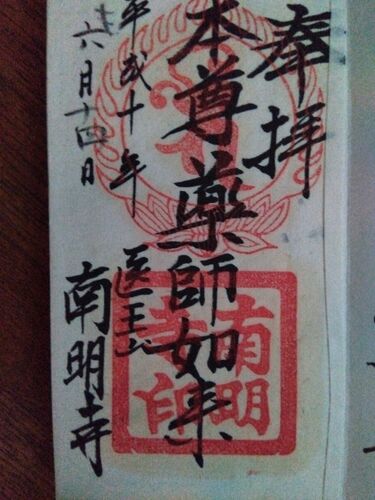 奉拝
本尊薬師如来
平成十年
六月十四日
医王山
南明寺
南明
寺印